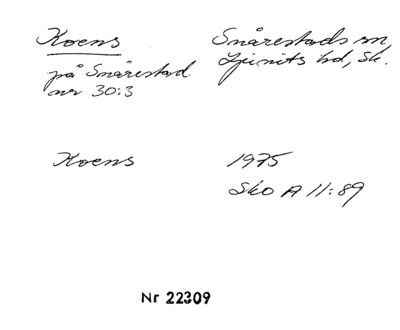 Koens Snårestads sn
på Snårestad Ljunits hd, Sk.
nr 30:3
Koens 1975
Sko A 11:89
Nr 22309